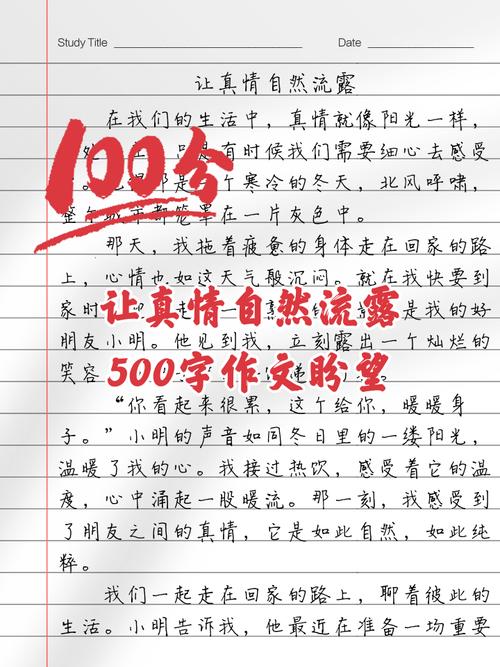 Study Title
Date
让真情自然流露
在我们的生活中，真情就像阳光一样，
有时候我们需要细心去感受
个寒冷的冬天，北风呼啸，
笼罩在一片灰色中。
100分
那天，我拖着疲惫的身体走在回家的路
上，心情也如这天气般沉闷。就在我快要到
家时
是我的好
让真情自然流露
朋友小明。他见到我，立刻露出一个灿烂的
笑容
500字作文盼望
“你看起来很累，这个给你，暖暖身
子。”小明的声音如同冬日里的一缕阳光，
温暖了我的心。我接过热饮，感受着它的温
度，心中涌起一股暖流。那一刻，我感受到
了朋友之间的真情，它是如此自然，如此纯
粹。
我们一起走在回家的路上，聊着彼此的
生活。小明告诉我，他最近在准备一场重要